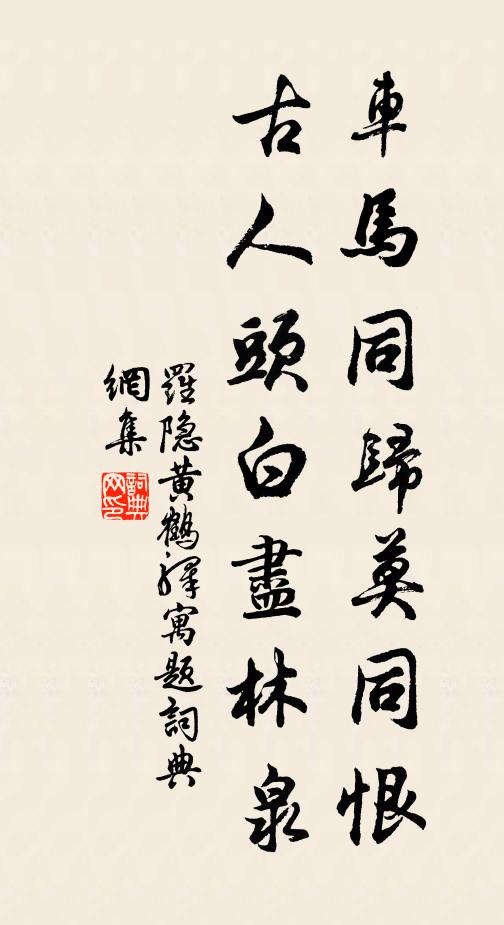 車馬同歸莫同恨
古人頭白盡林泉
羅隐黄鶴驛寓題詞典
網集
詞典網印